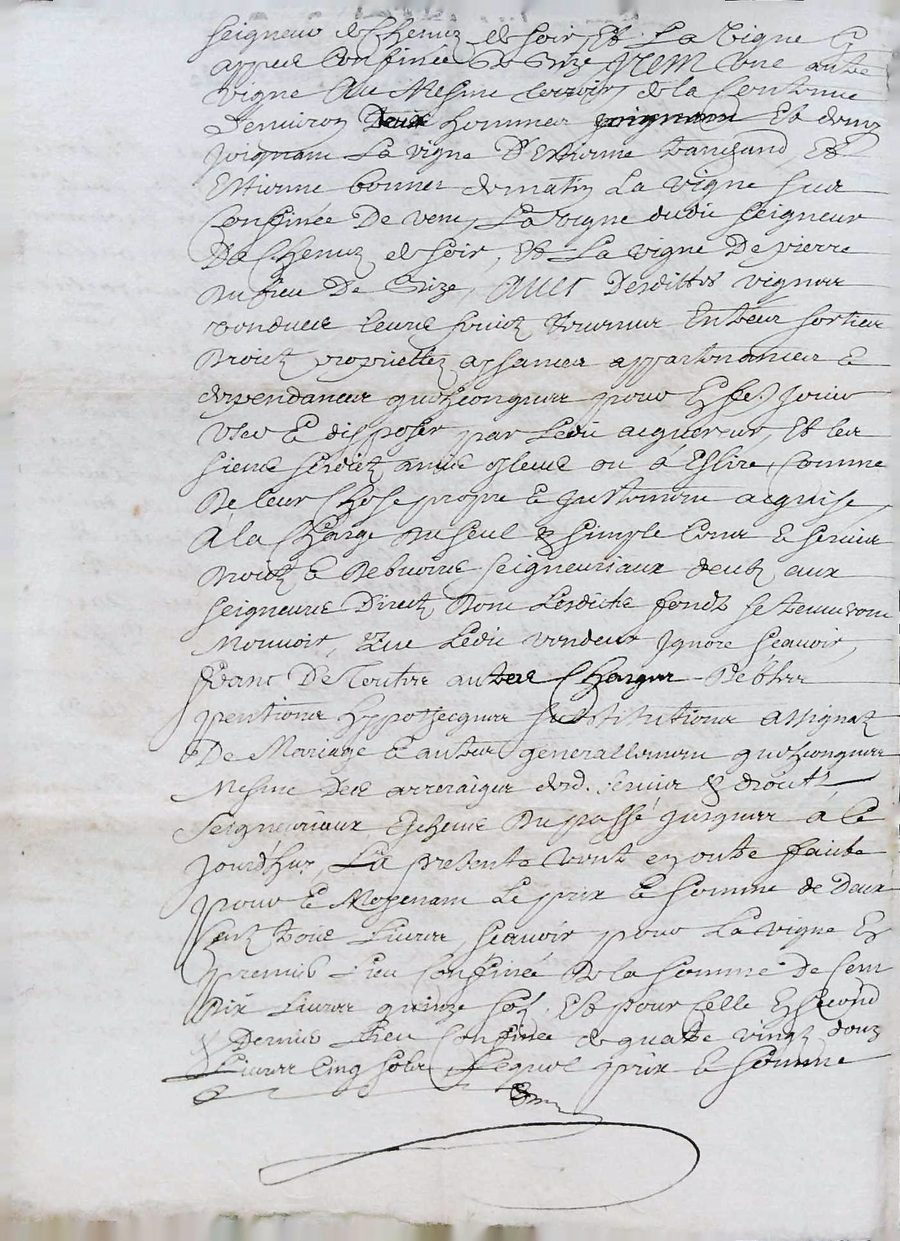 seigneur de Chemuz de soir, Et La vigne Cy
appres Confinée de bize, Item Une autre
vigne Au Mesme terroir, de la Contenue
Denuiron Deux hommes joignant Et dans
joignant La vigne D'Estienne
Estienne bonnet de matin La vigne sus
Confinée De vent, La vigne dudit seigneur
De Chemuz de soir, Et La vigne De pierre
Mathieu De bize, Auec Desdittes vignes
vendues leurs fruictz fournirs Entrées sorties
Droictz proprietez aysances appartenances &
dependances quelconques pour Estre Jouir
Vser & disposer par Ledit acquereur, Et les
siens heritz amis esleus ou à Eslire, Comme
De leur Chose propre & justement acquise,
A la Charge du seul & simple Cens & seruis
Droictz & Debuoirs seigneuriaux deubz aux
seigneurs Directz, Dont Lesdicts fondz se treuueront
Mouuoir, Que Ledit vendeur Ignore scauoir,
franc De Toutes autres Charges Debtes
pentions hyppotecques substitutions assignatz
De Mariage & autres generallement quelconques
Mesme Des arreraiges desd. seruis & droitz
Seigneuriaux Escheus Du passé jusques à Ce
jourd'huy, La presente vente ez oultre faicte
pour & Moyenant Le prix & somme de Deux
Centz trois Liures scauoir pour La vigne En
premier Lieu Confinée De la somme De Cent
Dix Liures quinze solz, Et pour Celle En second
& Dernier Lieu Confinée de quatre vingtz douz
Liures Cinq solz, Lequel prix & somme